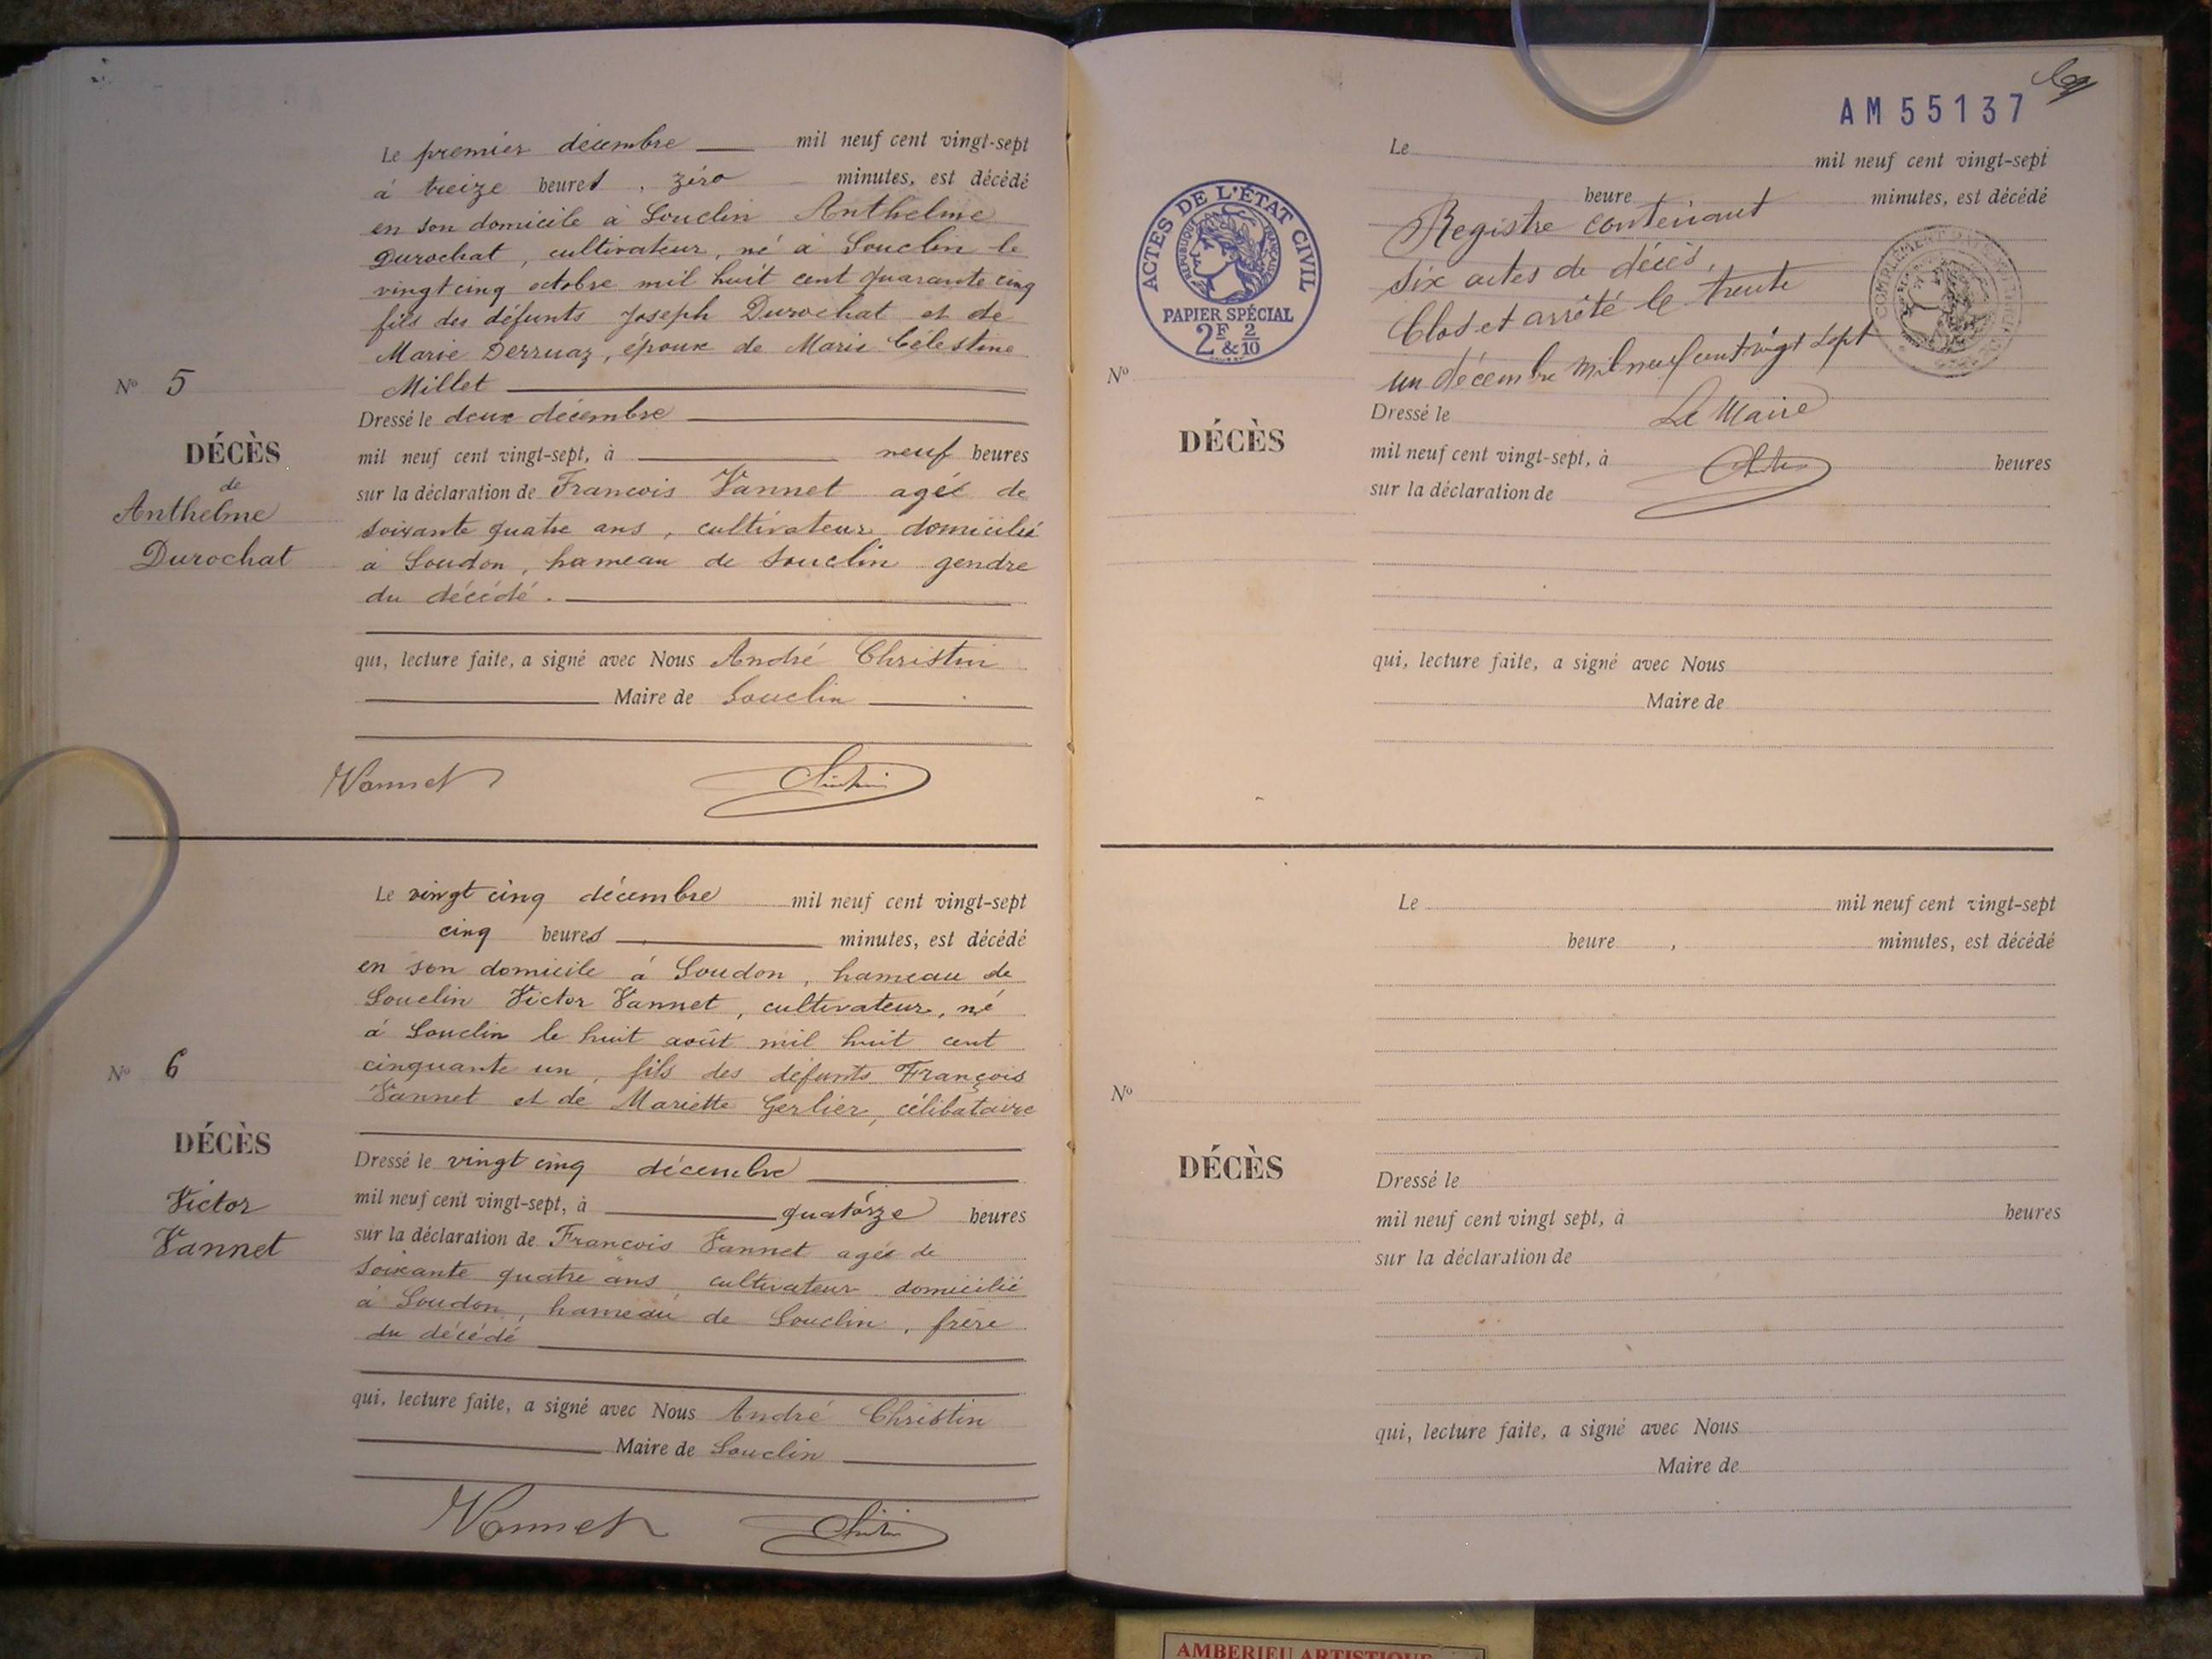 Le premier décembre mil neuf cent vingt-sept
à treize heures, zéro minutes, est décédé
en son domicile à Souclin Anthelme
Durochat, cultivateur, né à Souclin le
vingt cinq octobre mil huit cent quarante cinq
fils des défunts Joseph Durochat et de
Marie Derruaz, époux de Marie Célestine
Millet
Nº 5
DÉCÈS
de
Anthelme
Durochat
Dressé le deux décembre
mil neuf cent vingt-sept, à neuf heures
sur la déclaration de Francois Vannet agée de
soixante quatre ans, cultivateur domicilié
à Soudon, hameau de Souclin gendre
du décédé.
qui, lecture faite, a signé avec Nous André Christin
Maire de Souclin
Vannet
Le vingt cinq décembre mil neuf cent vingt-sept
cinq heures, minutes, est décédé
en son domicile à Soudon, hameau de
Souclin Victor Vannet, cultivateur, né
à Souclin le huit août mil huit cent
cinquante un, fils des défunts François
Vannet et de Mariette Gerlier, célibataire
Nº 6
DÉCÈS
Victor
Vannet
Dressé le vingt cinq décembre
mil neuf cent vingt-sept, à quatorze heures
sur la déclaration de Francois Vannet agée de
soixante quatre ans cultivateur domicilié
à Soudon, hameau de Souclin, frère
du décédé
qui, lecture faite, a signé avec Nous André Christin
Maire de Souclin
Vannet
AM 55137
Le mil neuf cent vingt-sept
heure minutes, est décédé
ACTES DE L'ÉTAT CIVIL
RÉPUBLIQUE FRANÇAISE
PAPIER SPÉCIAL
2F & 2/10
Registre contenant
six actes de décès,
Clos et arrêté le trente
un décembre mil neuf cent vingt sept
Nº
DÉCÈS
Dressé le Le Maire
mil neuf cent vingt-sept, à heures
sur la déclaration de
qui, lecture faite, a signé avec Nous
Maire de
Le mil neuf cent vingt-sept
heure, minutes, est décédé
Nº
DÉCÈS
Dressé le
mil neuf cent vingt sept, à heures
sur la déclaration de
qui, lecture faite, a signé avec Nous
Maire de
AMBERIEU ARTISTIQUE